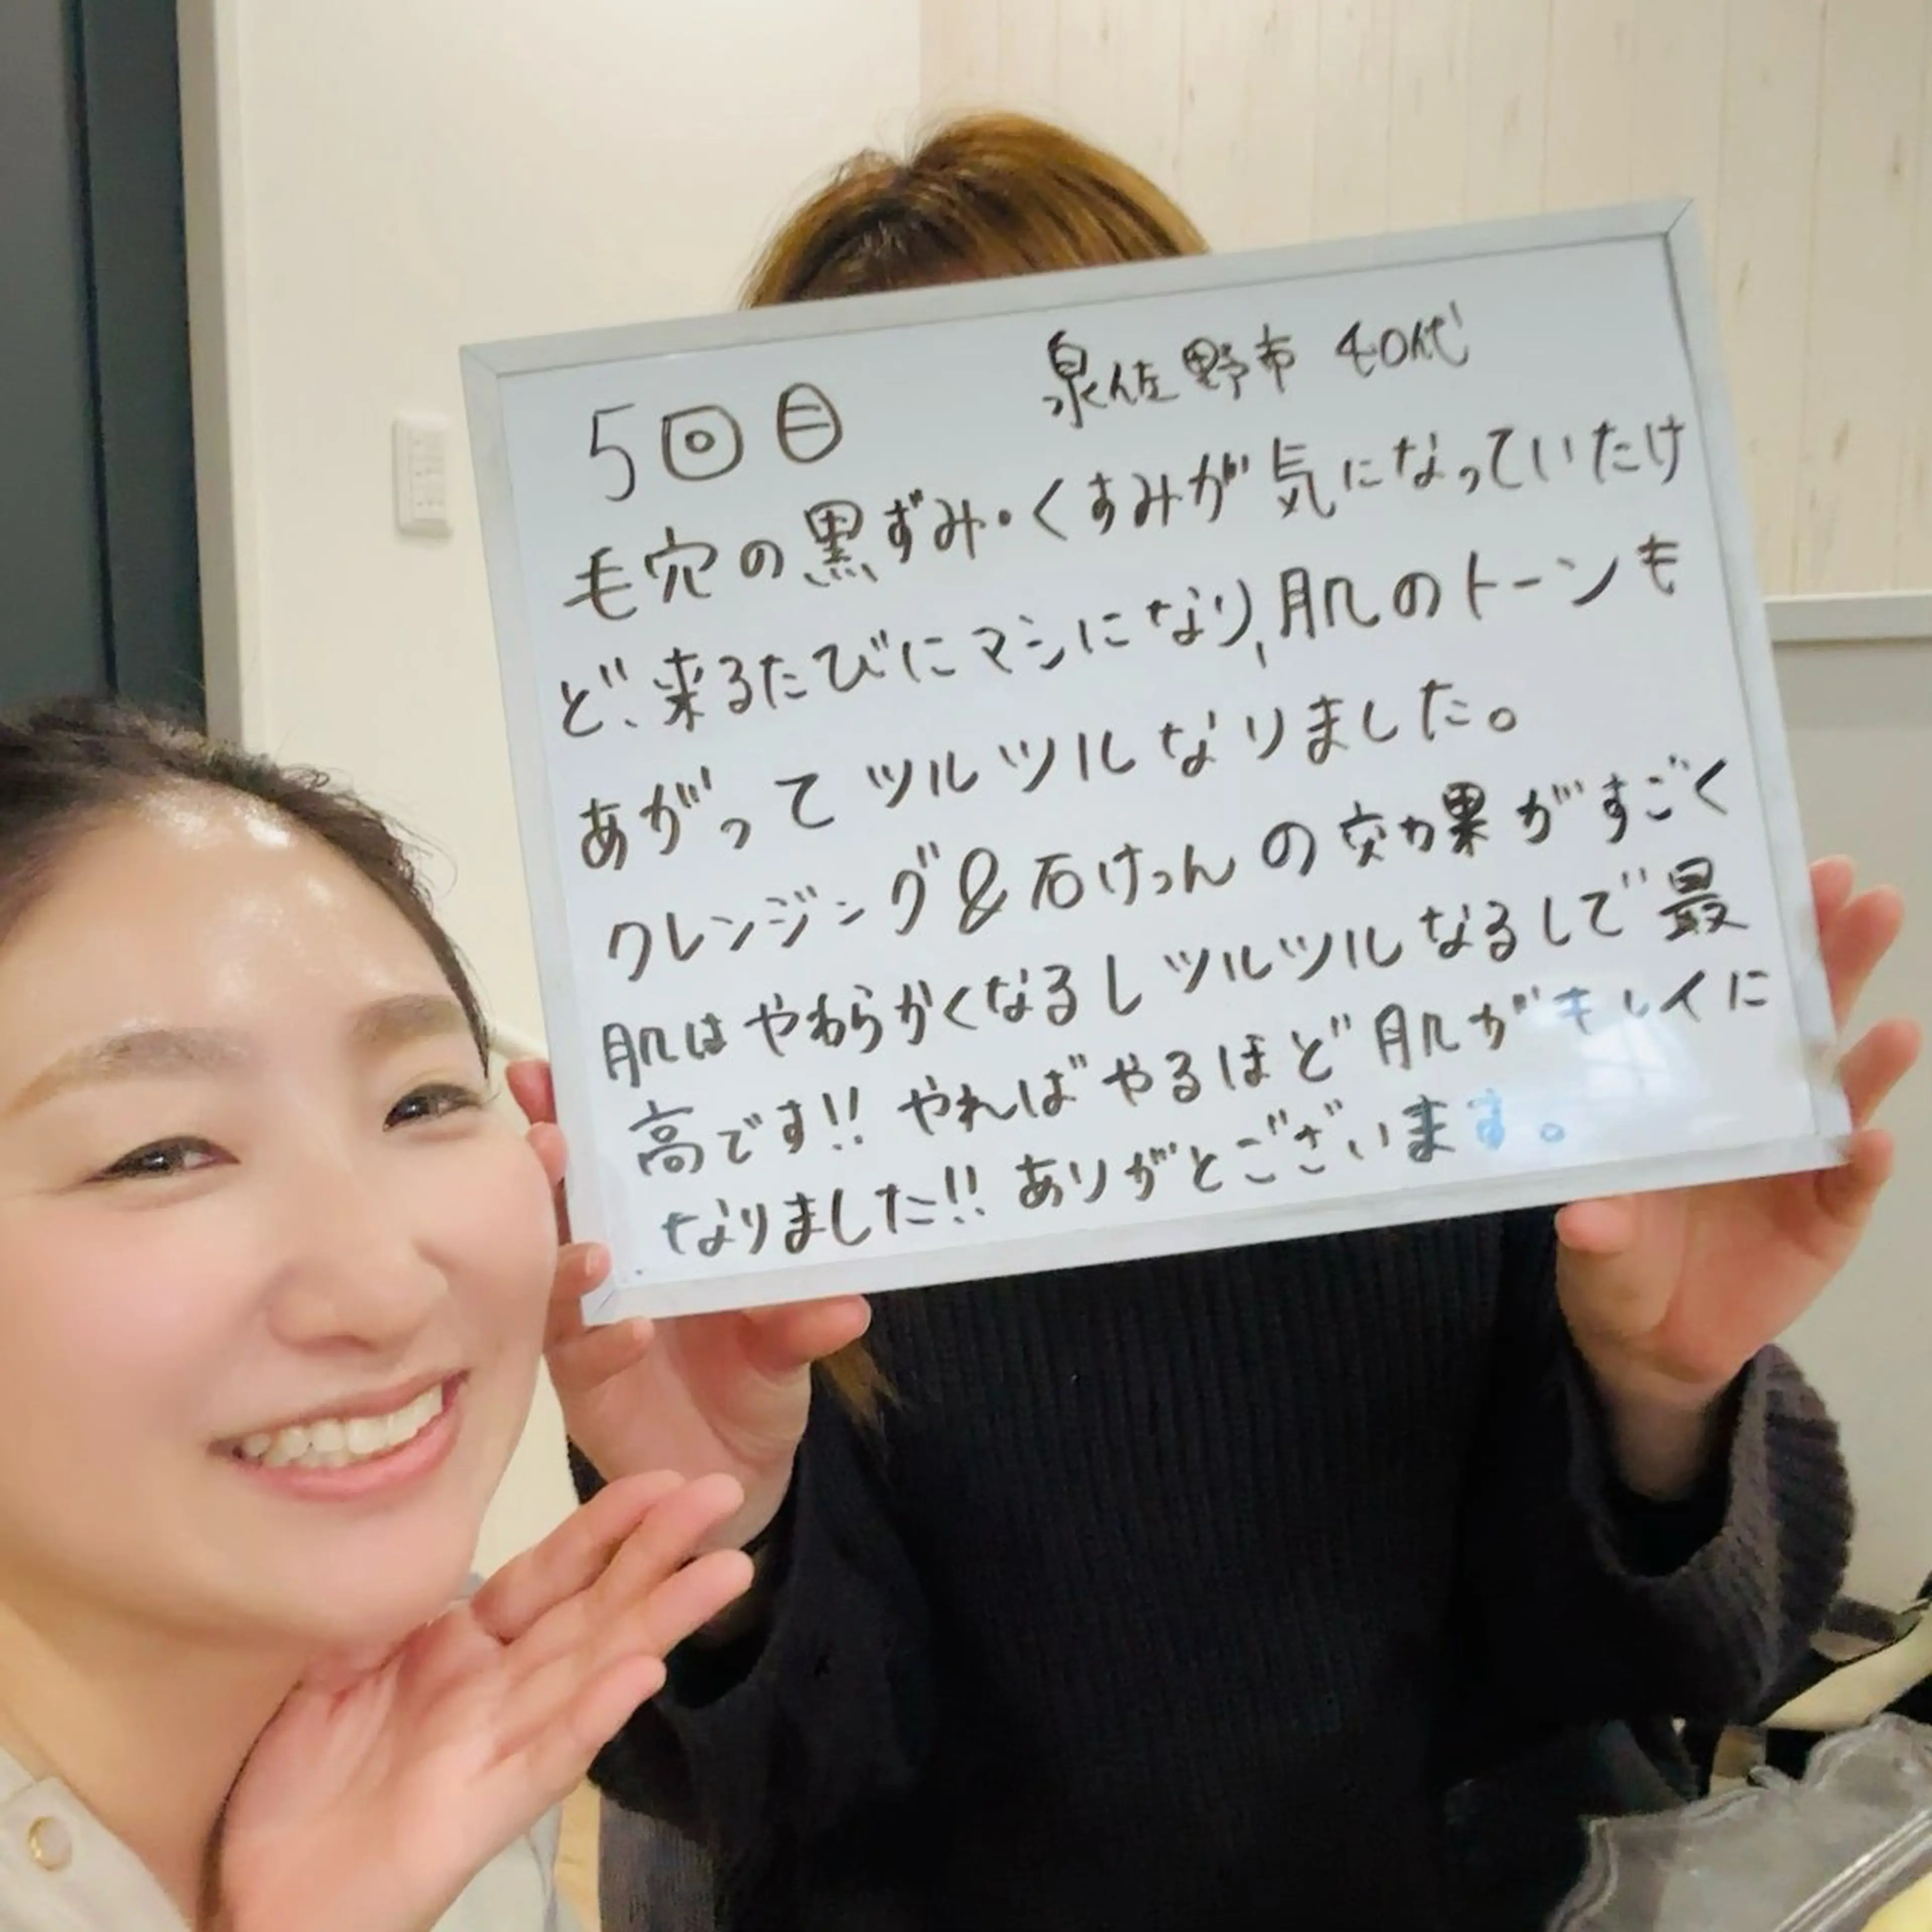 5回目
泉佐野市 40代
毛穴の黒ずみ・くすみが気になっていたけ
ど、来るたびにマシになり、肌のトーンも
あがってツルツルなりました。
クレンジング&石けっんの効果がすごく
肌はやわらかくなるしツルツルなるしで最
高です!! やればやるほど肌がキレイに
なりました!! ありがとございます。